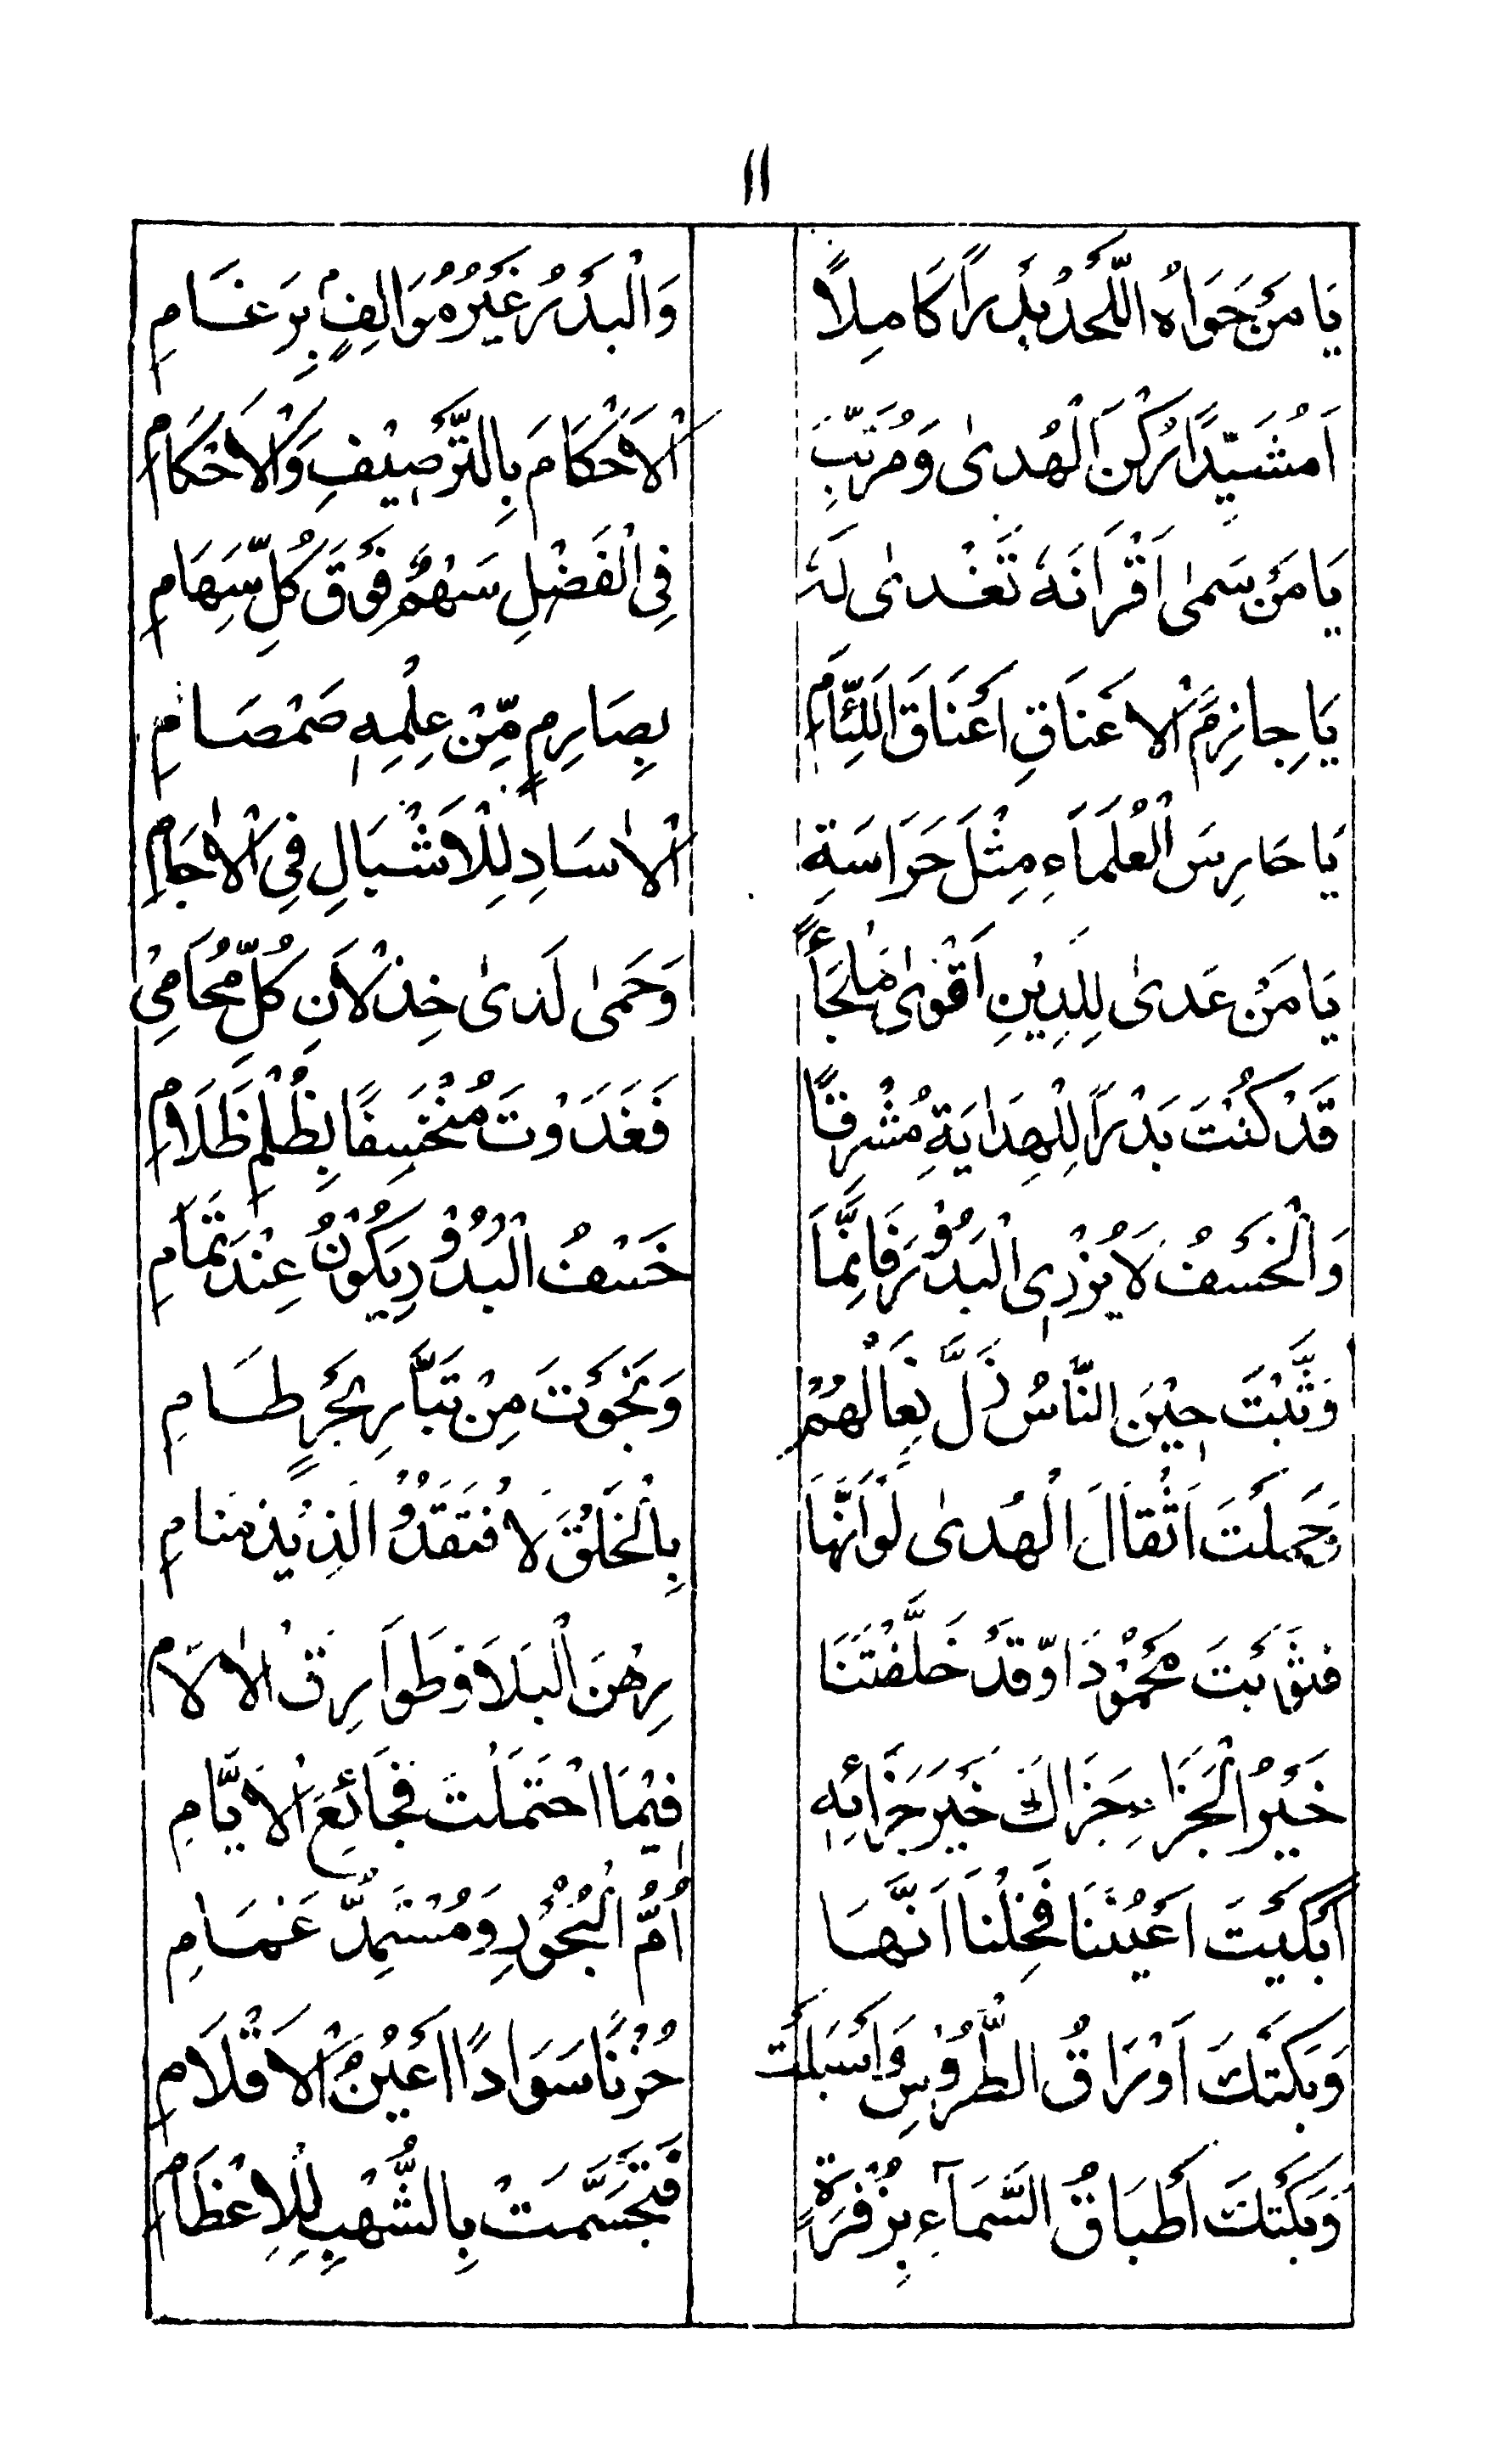 ١١
يَا مَنْ حَوَاهُ اللَّحْدُ بَدْرًا كَامِلًا وَالْبَدْرُ غَيْرُ مُوَالِفٍ بِرَغَامِ
اَمُشَيِّدًا رُكْنَ الْهُدىٰ وَمُرَتِّبَ الْاَحْكَامَ بِالتَّرْصِيْفِ وَالْاَحْكَامِ
يَا مَنْ سَمىٰ اَقْرَانَهٗ تَغْدىٰ لَهٗ فِي الْفَضْلِ سَهْمٌ فَوْقَ كُلِّ سِهَامِ
يَا جَازِمَ الْاَعْنَاقِ اَعْنَاقَ اللِّئَامِ بِصَارِمٍ مِّنْ عِلْمِهٖ صَمْصَامِ
يَا حَارِسَ الْعُلَمَاءِ مِثْلَ حَرَاسَةِ الْاٰسَادِ لِلْاَشْبَالِ فِي الْاٰجَامِ
يَا مَنْ عَدىٰ لِلدِيْنِ اَقْوىٰ مَلْجَأً وَحَمىٰ لَدىٰ خِذْلَانِ كُلِّ مُحَامِيْ
قَدْ كُنْتَ بَدْرًا لِلْهِدَايَةِ مُشْرِقًا فَغَدَوْتَ مُنْخَسِفًا بِظُلْمِ ظَلَامِ
وَالْخَسْفُ لَا يُزْرِي الْبَدُوْرَ فَاِنَّمَا خَسْفُ الْبُدُوْرِ يَكُوْنُ عِنْدَ تَمَامِ
وَثَبْتَ حِيْنَ النَّاسُ زَلَّ نِعَالُهُمْ وَنَجَوْتَ مِنْ تَبَّارِ بَحْرٍ طَامِ
وَحَمِلْتَ اَثْقَالَ الْهُدىٰ لَوْ اَنَّهَا بِالْخَلْقِ لَافْتَقَدُوْا لَذِيْذَ مَنَامِ
فَثَوَيْتَ مَحْمُوْدًا وَّقَدْ خَلَّفْتَنَا رِهْنَ الْبَلَا وَطَوَارِقِ الْاٰلَامِ
خَيْرُ الْجَزَاءِ جَزَاكَ خَيْرَ جَزَائِهٖ فِيْمَا احْتَمَلْتَ فَجَائِعَ الْاَيَّامِ
اَبْكَيْتَ اَعْيُنَنَا فَخِلْنَا اَنَّهَا اُمُّ الْبُحُوْرِ وَمُسْتَمِدُّ غَمَامِ
وَبَكَتْكَ اَوْرَاقُ الطُّرُوْسِ وَاَسْبَلَتْ حُزْنًا سَوَادًا اَعْيُنُ الْاَقْلَامِ
وَبَكَتْكَ اَطْبَاقُ السَّمَآءِ بِزُفْرَةٍ فَتَجَسَّمَتْ بِالشُّهْبِ لِلْاِعْظَامِ